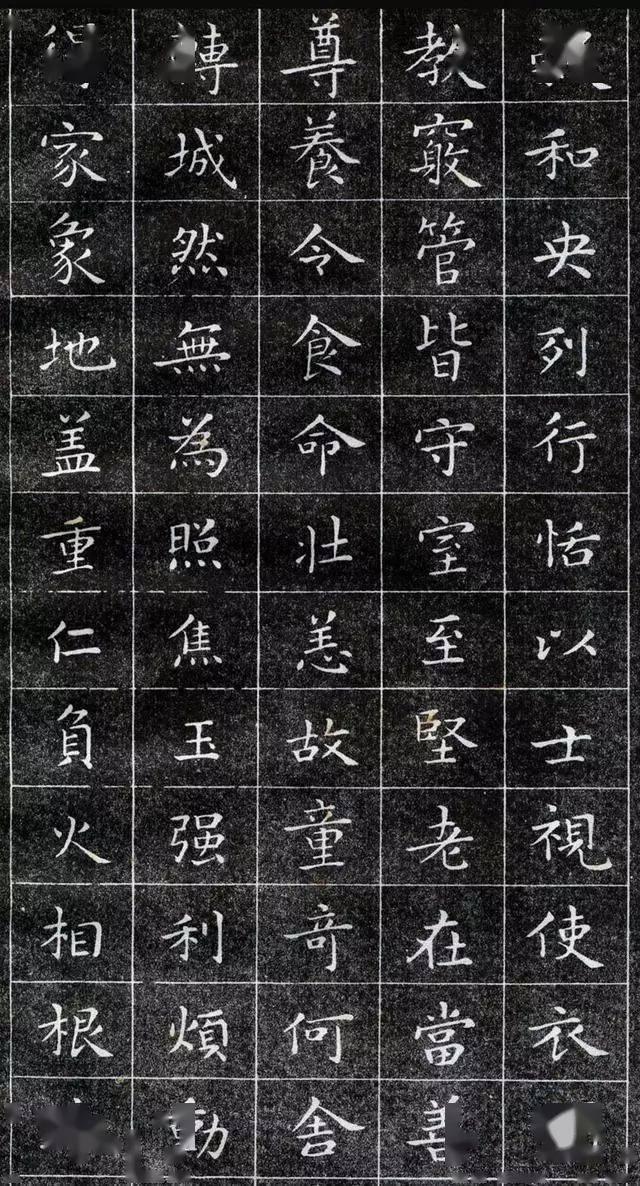 和央列行恬以士視使衣
教竅管皆守室至堅老在當善
尊養令食命壯恙故童奇何舍
城然無為照焦玉强利煩動
家象地盖重仁負火相根